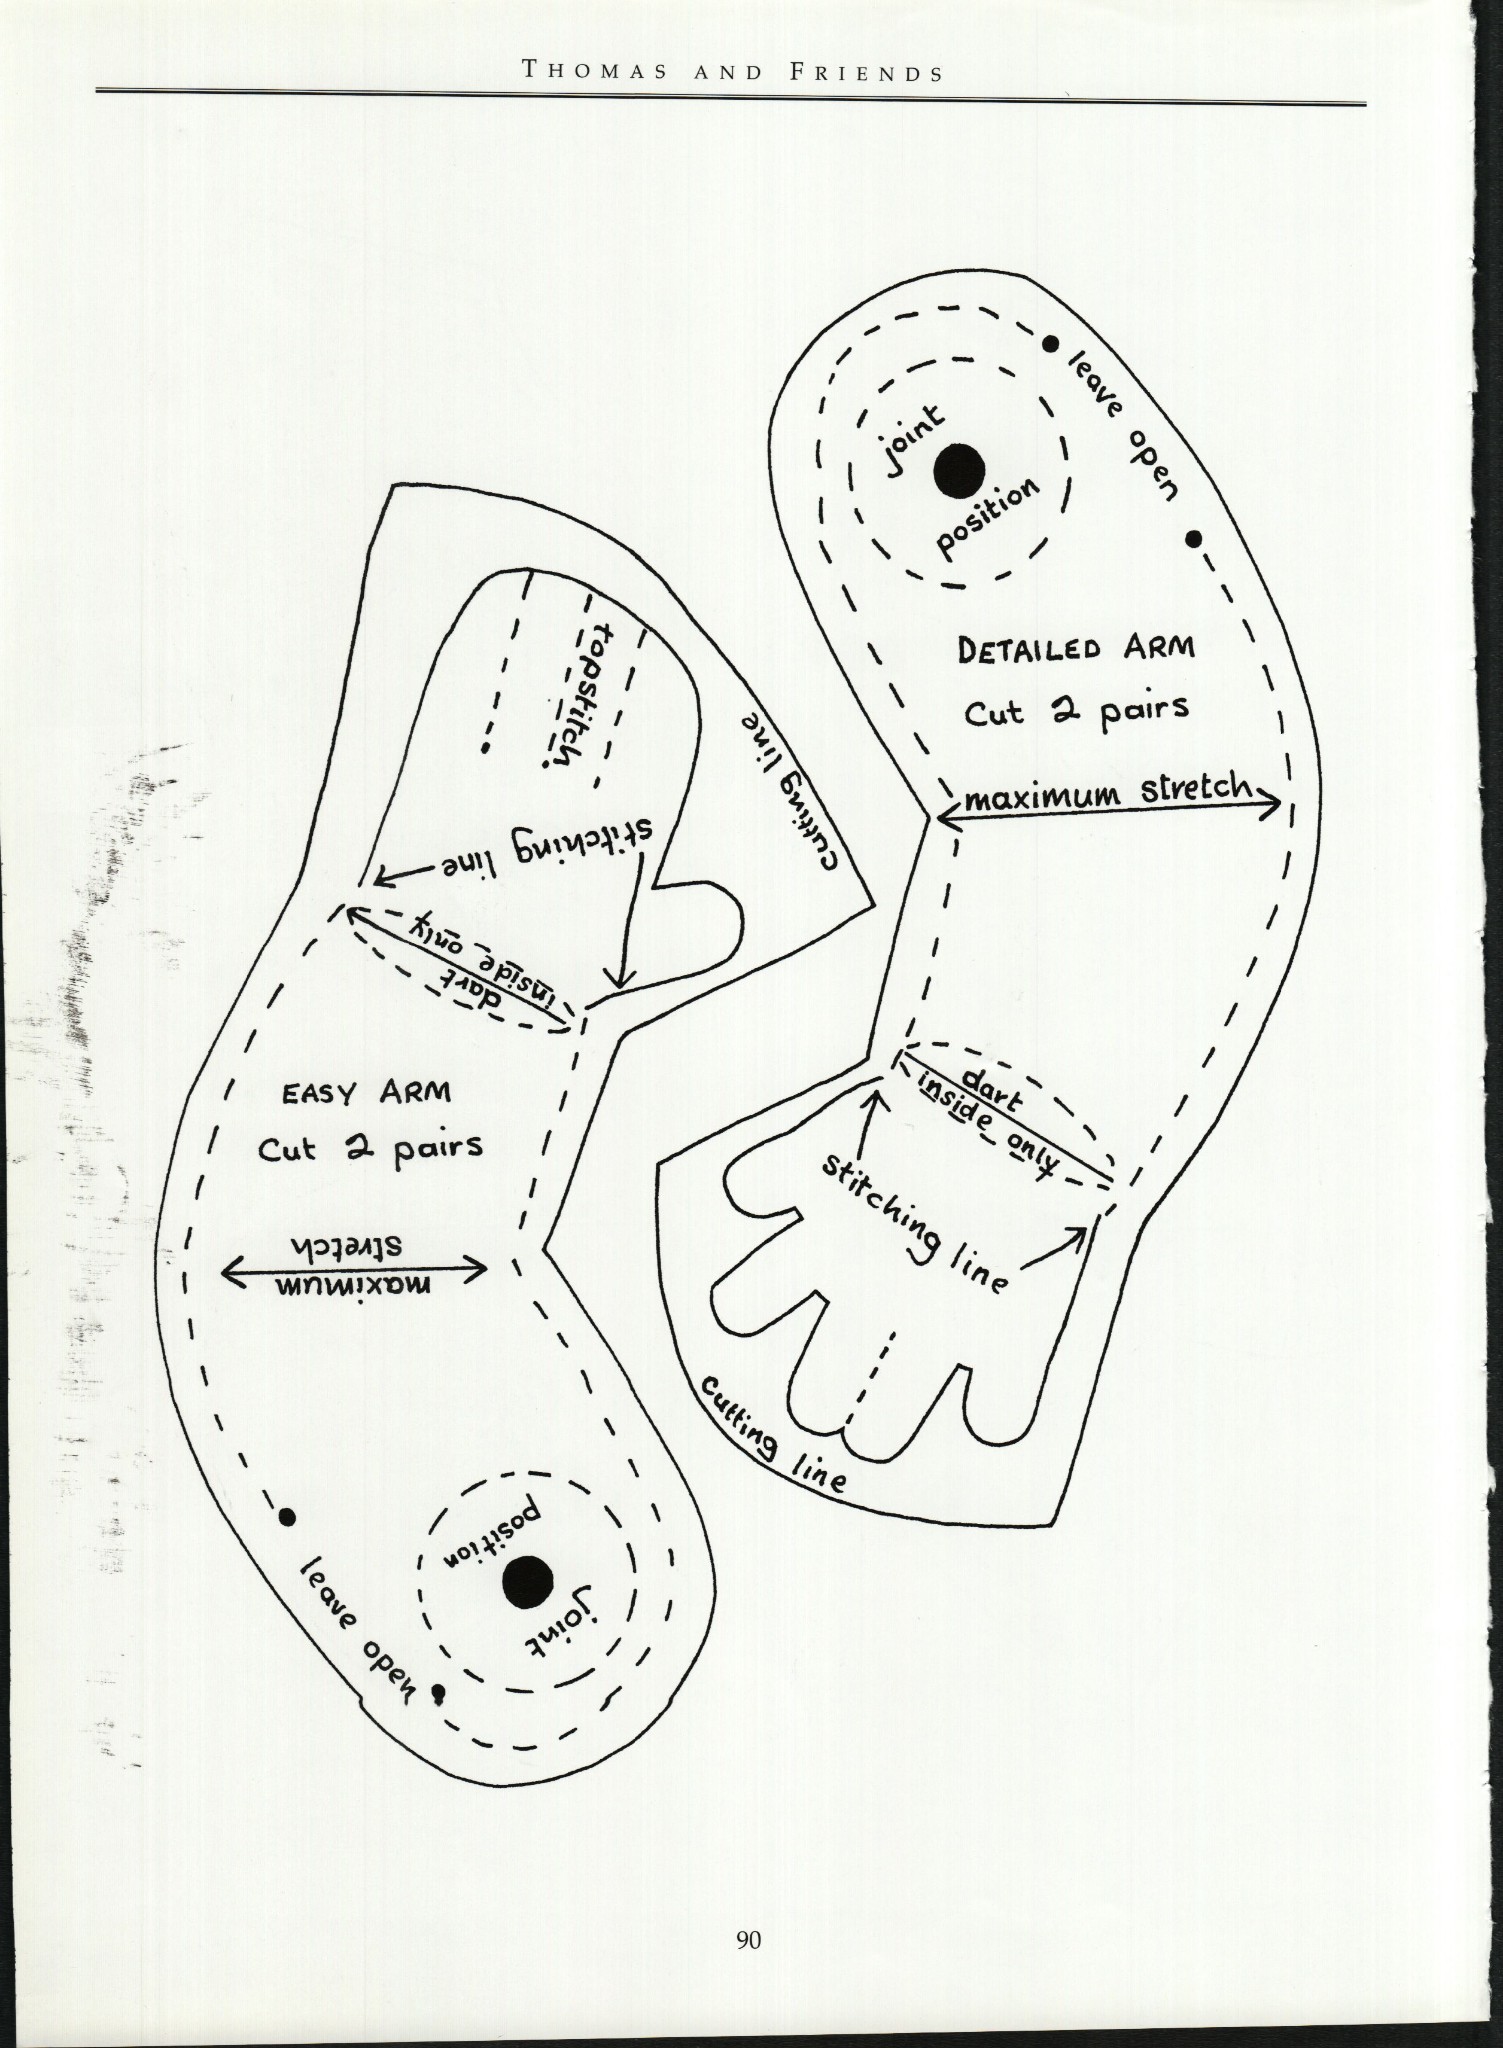 THOMAS AND FRIENDS
leave open
joint
position
DETAILED ARM
Cut 2 pairs
maximum stretch
dart
inside only
stitching line
cutting line
topstitch
cutting line
stitching line
inside only
dart
EASY ARM
Cut 2 pairs
maximum
stretch
joint
position
leave open
90